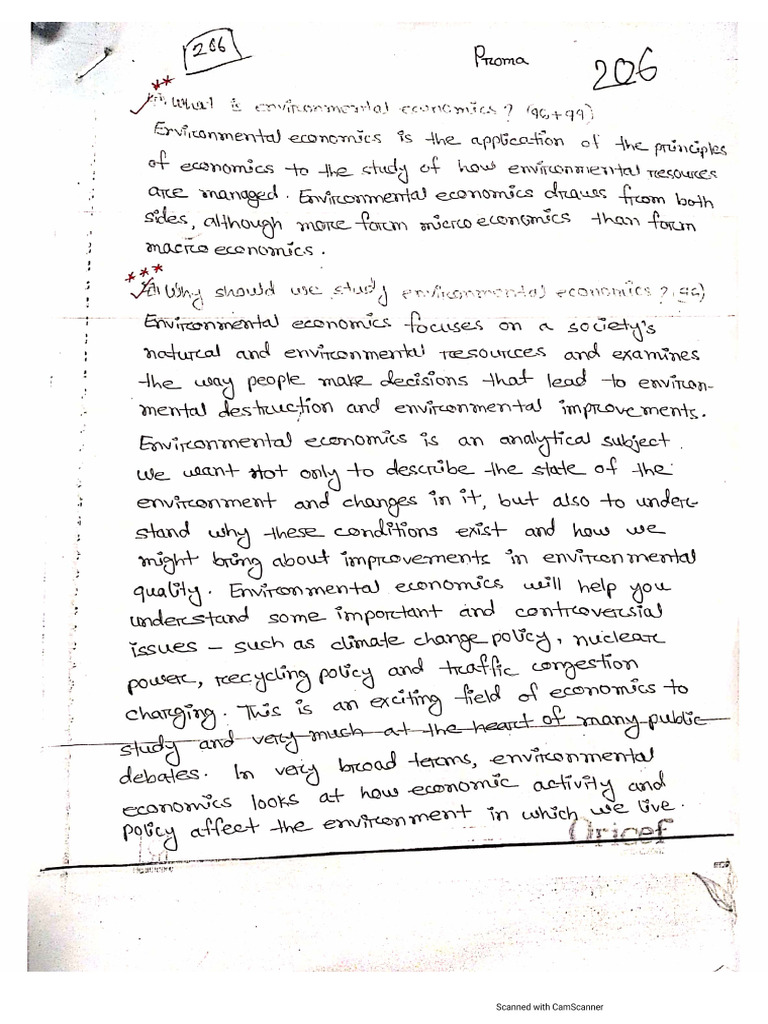 206
Proma
206
**
What is environmental economics? (96+99)
Environmental economics is the application of the principles
of economics to the study of how environmental resources
are managed. Environmental economics draws from both
sides, although more form micro economics than form
macro economics.
***
Why should we study environmental economics?
Environmental economics focuses on a society's
natural and environmental resources and examines
the way people make decisions that lead to environ-
mental destruction and environmental improvements.
Environmental economics is an analytical subject.
We want not only to describe the state of the
environment and changes in it, but also to under-
stand why these conditions exist and how we
might bring about improvements in environmental
quality. Environmental economics will help you
understand some important and controversial
issues – such as climate change policy, nuclear
power, recycling policy and traffic congestion
charging. This is an exciting field of economics to
study and very much at the heart of many public
debates. In very broad terms, environmental
economics looks at how economic activity and
policy affect the environment in which we live.
Unicef
Scanned with CamScanner